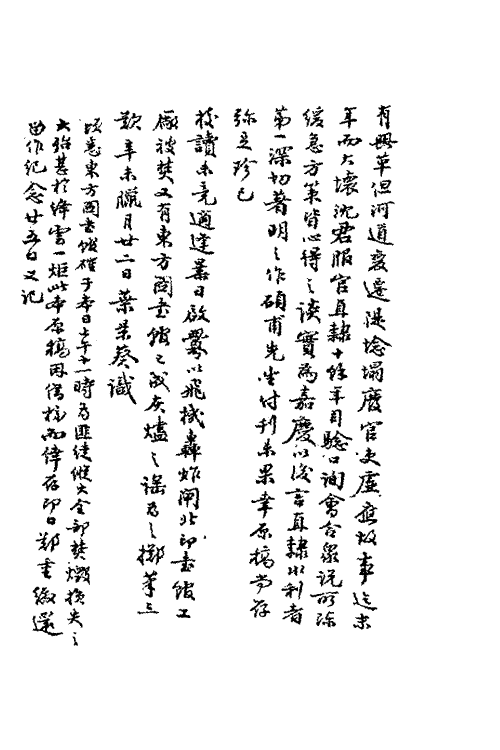 有興革但河道變遷隄埝塌廢官吏虛應故事迄未
年而大壞沈君服官直隸十餘年目驗口詢會合衆說所陳
緩急方策皆心得之談實為嘉慶以後言直隸水利者
第一深切著明之作碩甫先生付刊未果幸原稿尚存
彌足珍已
校讀未竟適逢暴日啟釁以飛機轟炸閘北印書館工
廠被焚又有東方圖書館已成灰燼之謠為之擲筆三
歎辛未臘月廿二日葉景葵識
頃悉東方圖書館確于本日上午十一時為匪徒縱火全部焚燬損失之
大殆甚於絳雲一炬此本原稿因借校而倖存即日鄭重繳還
留作紀念廿五日又記